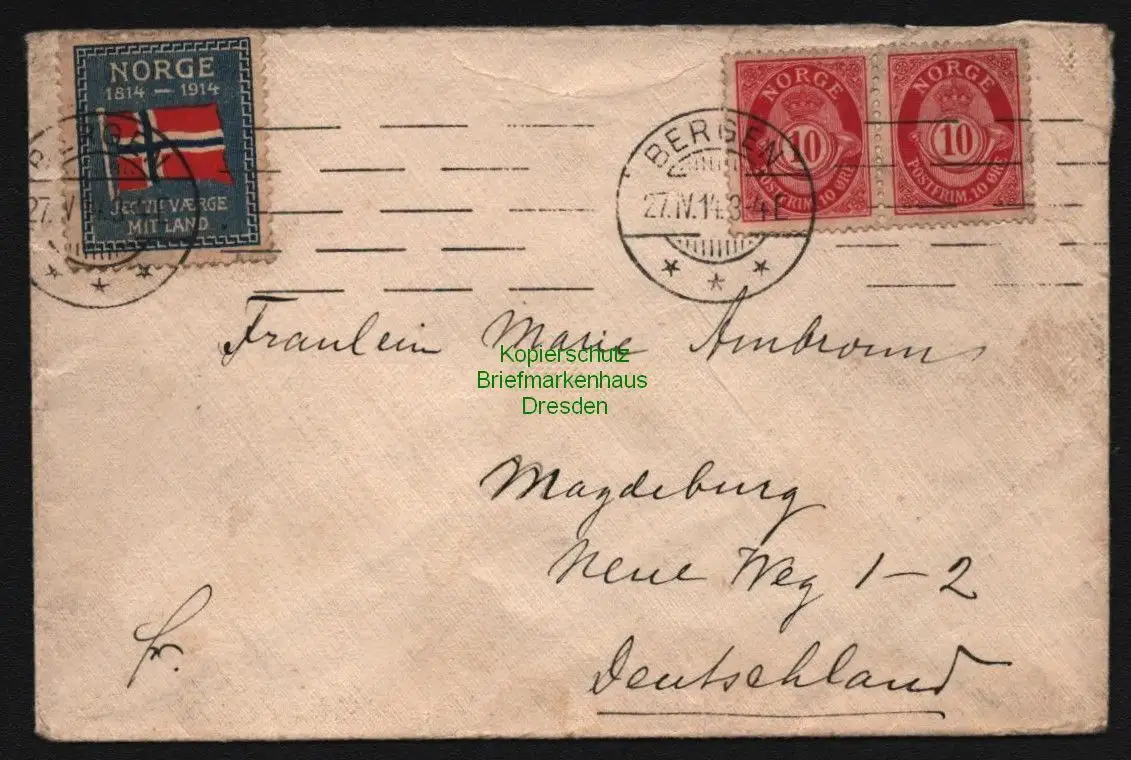 NORGE
1814 — 1914
JEG VIL VÆRGE
MIT LAND
BERGEN
27.IV.14.3-4E
NORGE
10
POSTFRIM. 10 ØRE
NORGE
10
POSTFRIM. 10 ØRE
Fräulein Marie Ambronn
Kopierschutz
Briefmarkenhaus
Dresden
Magdeburg
Neue Weg 1-2
fr.
Deutschland